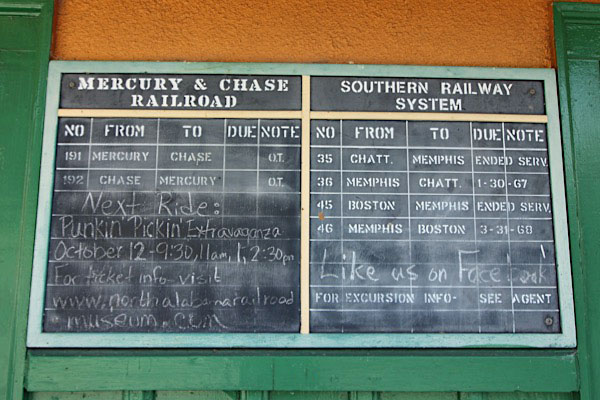 MERCURY & CHASE
RAILROAD
NO FROM TO DUE NOTE
191 MERCURY CHASE O.T.
192 CHASE MERCURY O.T.
Next Ride:
Punkin' Pickin' Extravaganza
October 12-9:30, 11am, 1, 2:30pm
For ticket info- visit
www.northalabamarailroad
museum.com
SOUTHERN RAILWAY
SYSTEM
NO FROM TO DUE NOTE
35 CHATT. MEMPHIS ENDED SERV.
36 MEMPHIS CHATT. 1-30-67
45 BOSTON MEMPHIS ENDED SERV.
46 MEMPHIS BOSTON 3-31-68
Like us on Facebook
FOR EXCURSION INFO- SEE AGENT